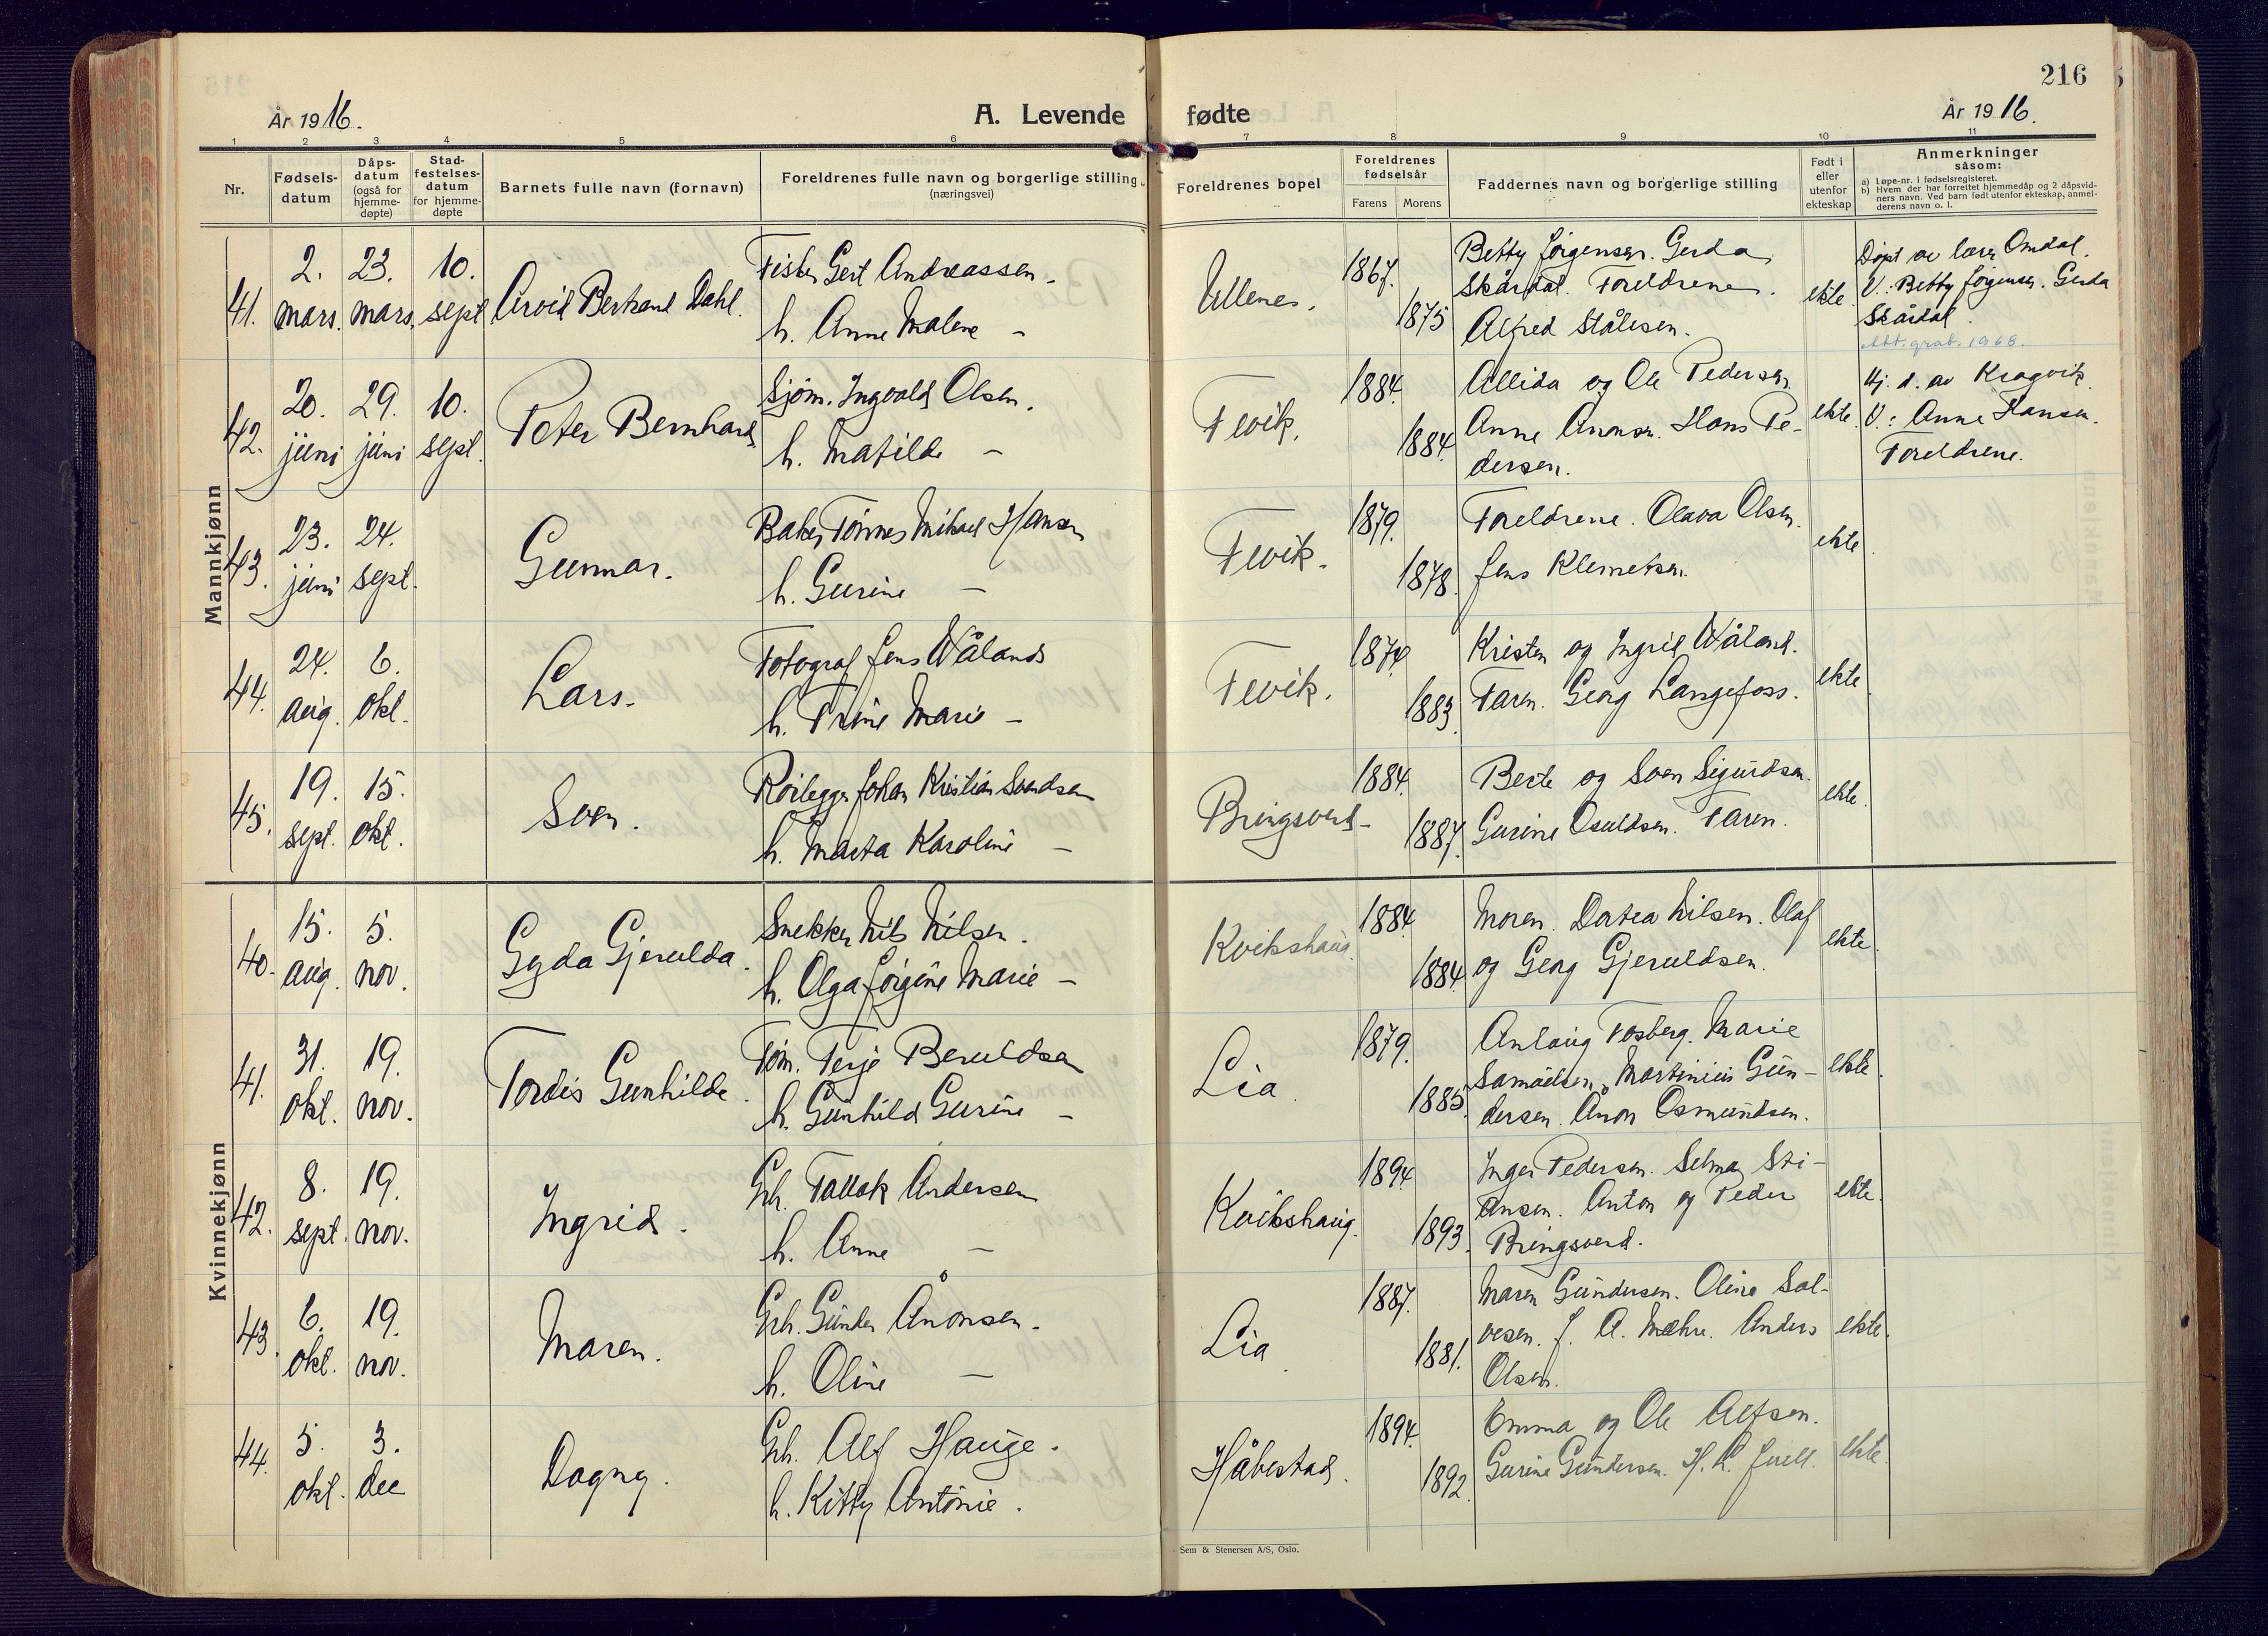 216
År 1916.
A. Levende fødte
År 1916.
1 2 3 4 5 6 7 8 9 10 11
Nr.
Fødsels-
datum
Dåps-
datum
(også for
hjemme-
døpte)
Stad-
festelses-
datum
for hjemme-
døpte
Barnets fulle navn (fornavn)
Foreldrenes fulle navn og borgerlige stilling
(næringsvei)
Foreldrenes bopel
Foreldrenes
fødselsår
Farens Morens
Faddernes navn og borgerlige stilling
Født i
eller
utenfor
ekteskap
Anmerkninger
såsom:
a) Løpe-nr. i fødselsregisteret.
b) Hvem der har forrettet hjemmedåp og 2 dåpsvid-
ners navn. Ved barn født utenfor ekteskap, anmel-
derens navn o. l.
Mannkjønn
41.
2.
mars.
23.
mars.
10.
sept
Arvid Bertrand Dahl.
Fisker Gert Andreassen.
h. Anne Malene –
Ullenes.
1867.
1875
Betty Jørgensen. Gerda
Skårdal. Foreldrene.
Alfred Stålesen.
ekte.
Døpt av lærer Omdal.
V. Betty Jørgensen. Gerda
Skårdal.
1968.
42.
20.
juni
29.
juni
10.
sept.
Peter Bernhard
Sjøm. Ingvald Olsen.
h. Matilde –
Fevik.
1884.
1884.
Allida og Ole Pedersen.
Anne Aronsen. Hans Pe-
dersen.
ekte.
Hj. d. av Kragvik.
V: Anne Hansen.
Foreldrene.
43.
23.
juni
24.
sept.
Gunnar.
Baker Tønnes Mikael Hansen
h. Gurine –
Fevik.
1879.
1878.
Foreldrene. Olava Olsen.
Jens Klemetsen.
ekte.
44.
24.
aug.
6.
okt.
Lars.
Fotograf Jens Wåland
h. Trine Marie –
Fevik.
1874
1883
Kristen og Ingrid Wåland.
Faren. Georg Langefoss.
ekte.
45.
19.
sept.
15.
okt.
Sven.
Rørlegger Johan Kristian Svendsen
h. Marta Karoline –
Bringsverd –
1884.
1887.
Berte og Sven Sigurdsen.
Gurine Osuldsen. Faren.
ekte.
Kvinnekjønn
40.
15.
aug.
5.
nov.
Gyda Gjerulda.
Snekker Nils Nilsen.
h. Olga Jørgine Marie –
Kvikshaug.
1884.
1884.
Moren. Dortea Nilsen. Olaf
og Georg Gjeruldsen.
ekte.
41.
31.
okt.
19.
nov.
Tordis Gunhilde.
Tøm. Terje Beruldsen
h. Gunhild Gurine –
Lia.
1879.
1885
Anlaug Fosberg. Marie
Samuelsen. Martinius Gun-
dersen. Ånon Osmundsen.
ekte.
42.
8.
sept.
19.
nov.
Ingrid.
Grh. Tallak Andersen
h. Anne –
Kvikshaug.
1894.
1893.
Inger Pedersen. Selma Sti-
ansen. Anton og Peder
Bringsverd.
ekte.
43.
6.
okt.
19.
nov.
Maren.
Grh. Gunder Ånonsen.
h. Oline –
Lia.
1887.
1881.
Maren Gundersen. Oline Sal-
vesen. J. A. Mæhre. Anders
Olsen.
ekte.
44.
5.
okt.
3.
dec
Dagny.
Grh. Alf Hauge.
h. Kitty Antonie.
Håbestad.
1894.
1892.
Emma og Ole Alfsen.
Gurine Gundersen. H. K. Juell.
ekte.
Sem & Stenersen A/S, Oslo.